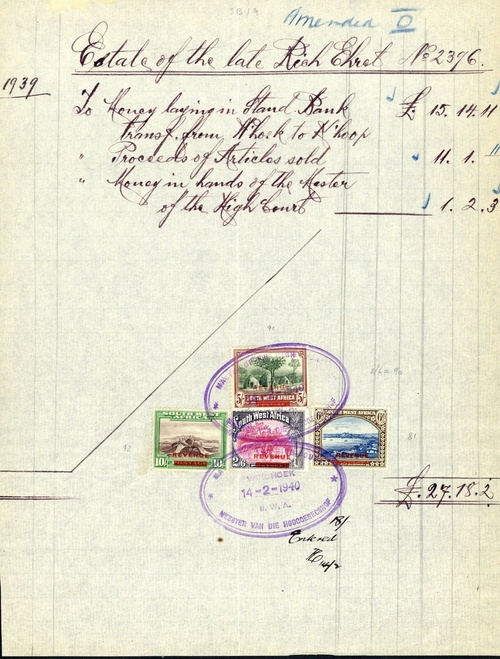 Amended D
Estate of the late Rich Ehret No 2396.
1939
To Money laying in Stand Bank £ 15. 14. 11
Transf. from W'hoek to K'hoop
" Proceeds of Articles sold 11. 1. "
" Money in hands of the Master
of the High Court 1. 2. 3
5/- SOUTH WEST AFRICA 5/-
SOUTH WEST AFRICA
South West Africa
SOUTH WEST AFRICA
REVENUE
REVENUE
REVENUE
10/ 10/
2/6
£. 27. 18. 2
14-2-1940
S.W.A.
MEESTER VAN DIE HOOGGEREGSHOF
18/
Entered
14/2